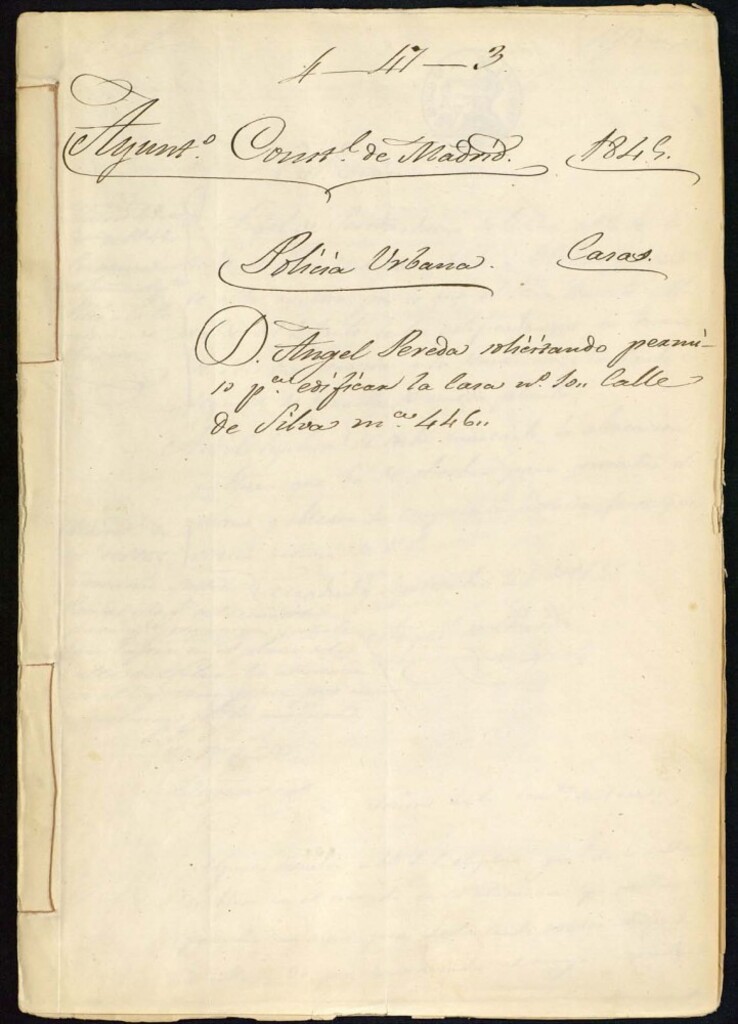 4 — 47 — 3
Ayunt.º Const.l de Madrid. 1845.
Policia Urbana. Casas.
D. Angel Pereda solicitando permi-
so p.ª edificar la Casa nº. 10,, Calle
de Silva m.ª 446,,